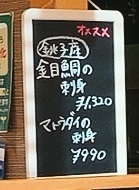 オススメ
銚子産
金目鯛の
刺身
¥1,320
マトウダイの
刺身
¥990